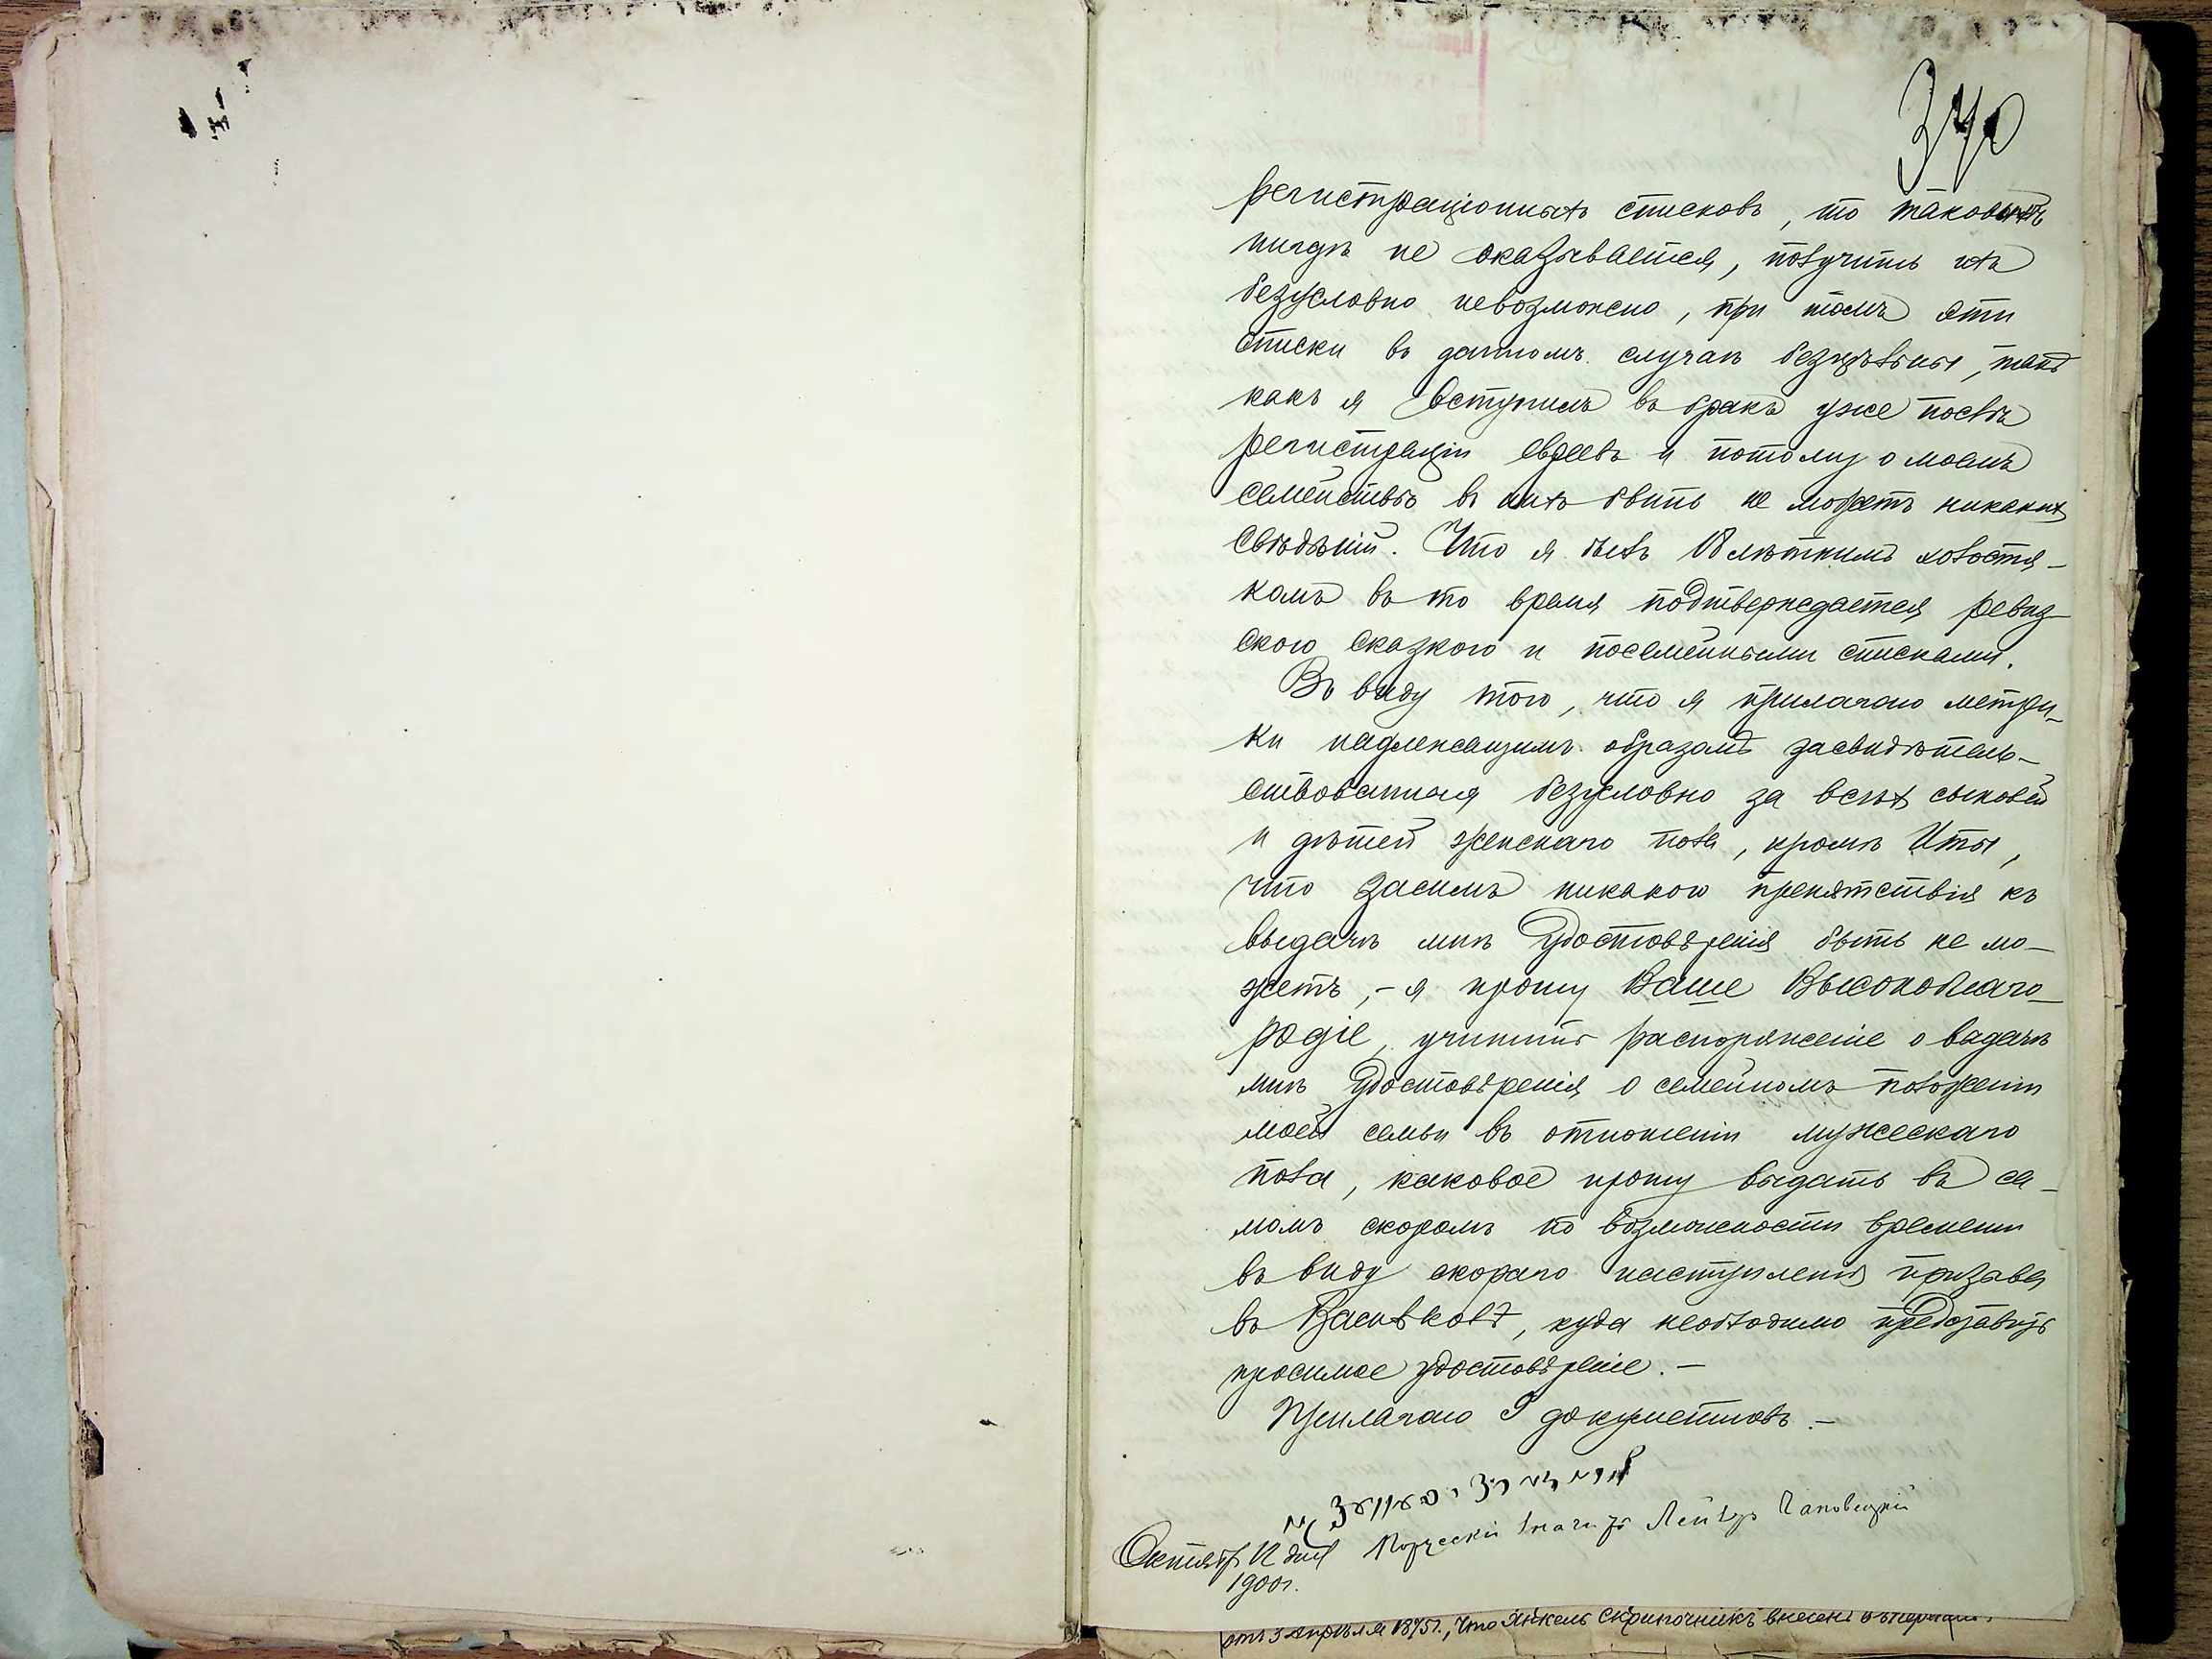 370
регистраціонныхъ списковъ, то таковыхъ
нигдѣ не оказывается, получить ихъ
безусловно невозможно, при томъ эти
списки въ данномъ случаѣ безцѣльны, такъ
какъ я вступилъ въ бракъ уже послѣ
регистраціи евреевъ и потому о моемъ
семействѣ въ нихъ быть не можетъ никакихъ
свѣдѣній. Что я былъ 18 лѣтнимъ холостя-
комъ въ то время подтверждается ревиз-
скою сказкою и посемейными списками.
Въ виду того, что я прилагаю метри-
ки надлежащимъ образомъ засвидѣтель-
ствованныя безусловно за всѣхъ сыновей
и дѣтей женскаго пола, кромѣ Иты,
что засимъ никакого препятствія къ
выдачѣ мнѣ удостовѣренія быть не мо-
жетъ, - я прошу Ваше Высокоблаго-
родіе, учинить распоряженіе о выдачѣ
мнѣ удостовѣренія о семейномъ положеніи
моей семьи въ отношеніи мужескаго
пола, каковое прошу выдать въ са-
момъ скоромъ по возможности времени
въ виду скораго наступленія призыва
въ Васильковѣ, куда необходимо представить
просимое удостовѣреніе. -
Прилагаю 9 документовъ. -
Лейзеръ Пановецкій
Октября 12 дня
1900г.
отъ 3 апрѣля 1875г., что Янкель Скрипочникъ внесенъ въ